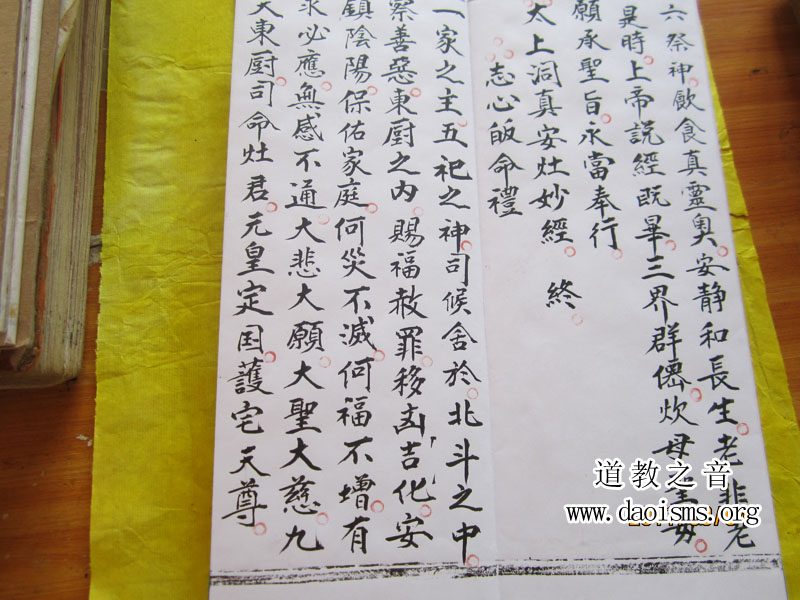 六祭神飲食真靈奥安静和長生老非老
是時上帝説經既畢三界群僊炊母
願承聖旨永當奉行
太上洞真安灶妙經 終
志心皈命禮
一家之主五祀之神司候舍於北斗之中
察善惡東厨之内賜福赦罪移凶吉化安
鎮陰陽保佑家庭何災不滅何福不增有
求必應無感不通大悲大願大聖大慈九
天東厨司命灶君元皇定国護宅天尊
道教之音
www.daoisms.org